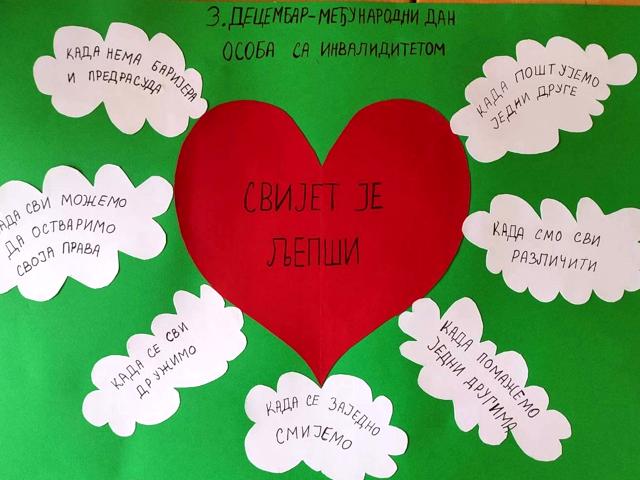 3. ДЕЦЕМБАР-МЕЂУНАРОДНИ ДАН
ОСОБА СА ИНВАЛИДИТЕТОМ
КАДА НЕМА БАРИЈЕРА
И ПРЕДРАСУДА
КАДА ПОШТУЈЕМО
ЈЕДНИ ДРУГЕ
СВИЈЕТ ЈЕ
ЉЕПШИ
КАДА СВИ МОЖЕМО
ДА ОСТВАРИМО
СВОЈА ПРАВА
КАДА СМО СВИ
РАЗЛИЧИТИ
КАДА СЕ СВИ
ДРУЖИМО
КАДА ПОМАЖЕМО
ЈЕДНИ ДРУГИМА
КАДА СЕ ЗАЈЕДНО
СМИЈЕМО